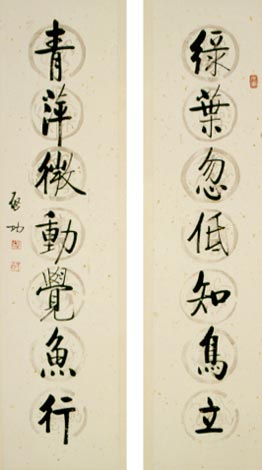 綠葉忽低知鳥立
青萍微動覺魚行
啟功